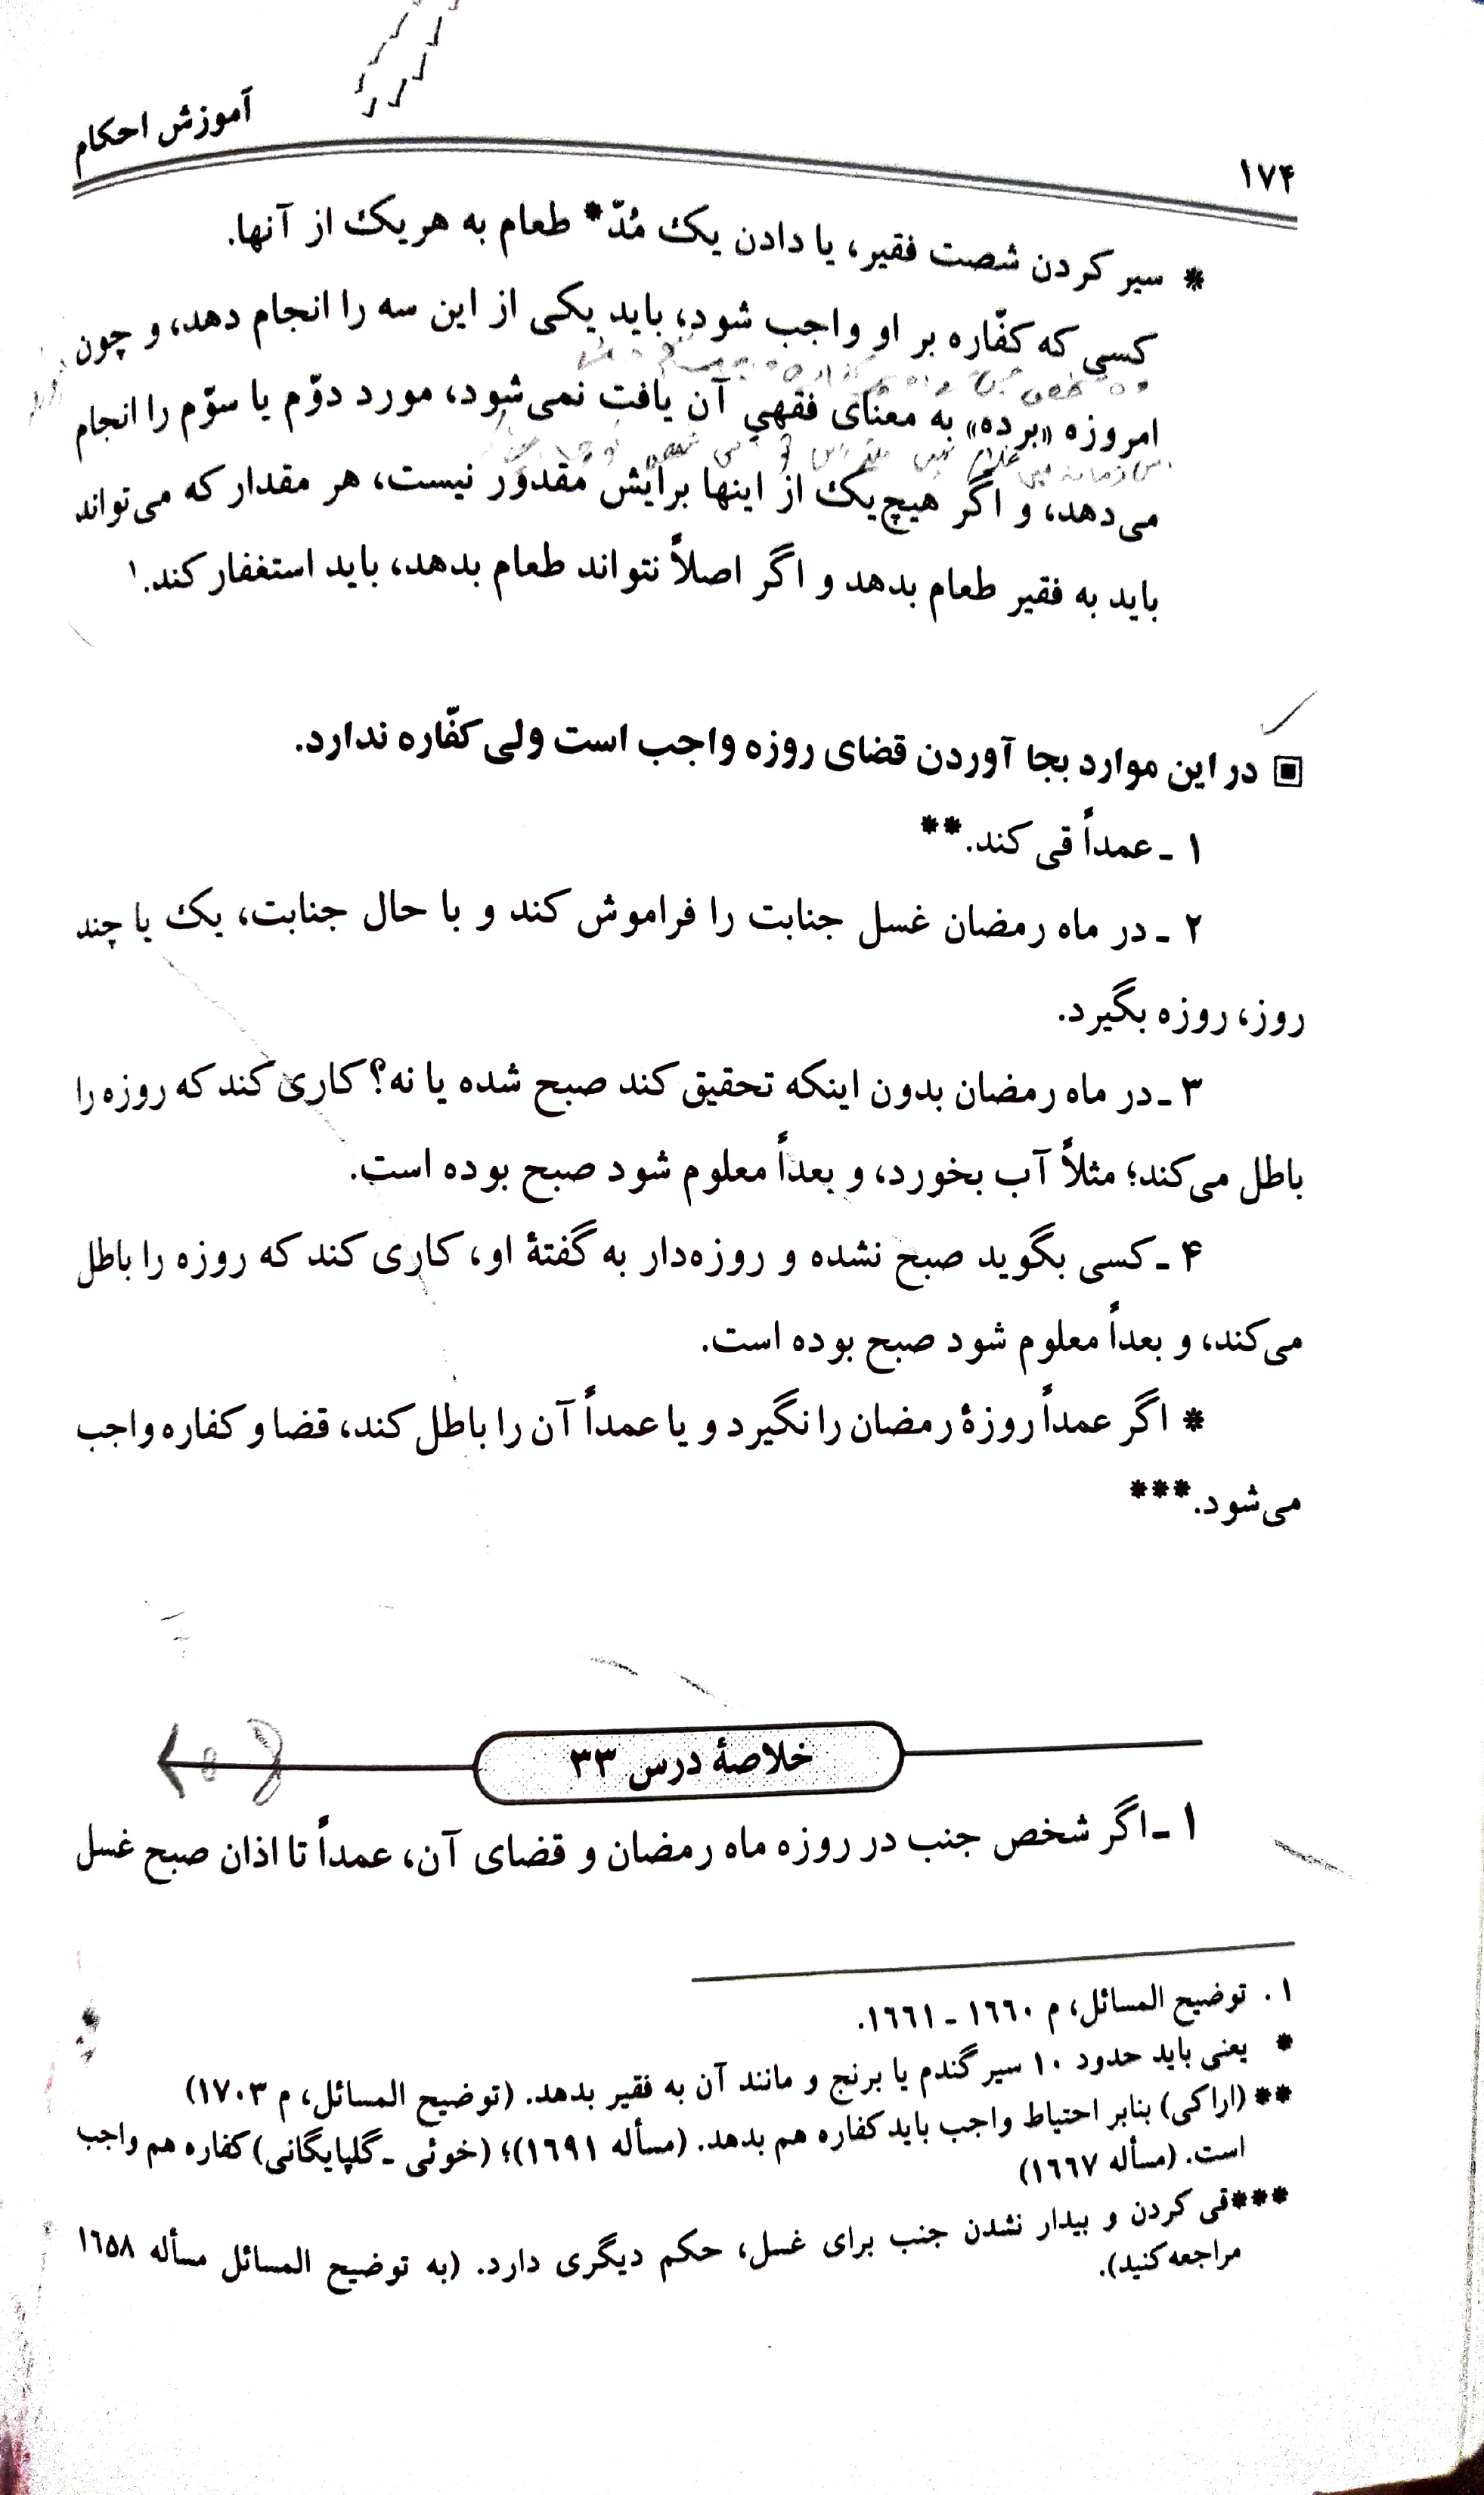 آموزش احکام
۱۷۴
* سیر کردن شصت فقیر، یا دادن یک مُدّ* طعام به هر یک از آنها.
کسی که کفّاره بر او واجب شود، باید یکی از این سه را انجام دهد، و چون
امروزه «برده» به معنای فقهی آن یافت نمی‌شود، مورد دوّم یا سوّم را انجام
می‌دهد، و اگر هیچ‌یک از اینها برایش مقدور نیست، هر مقدار که می‌تواند
باید به فقیر طعام بدهد و اگر اصلاً نتواند طعام بدهد، باید استغفار کند.۱
در این موارد بجا آوردن قضای روزه واجب است ولی کفّاره ندارد.
۱ ـ عمداً قی کند.**
۲ ـ در ماه رمضان غسل جنابت را فراموش کند و با حال جنابت، یک یا چند
روز، روزه بگیرد.
۳ ـ در ماه رمضان بدون اینکه تحقیق کند صبح شده یا نه؟ کاری کند که روزه را
باطل می‌کند؛ مثلاً آب بخورد، و بعداً معلوم شود صبح بوده است.
۴ ـ کسی بگوید صبح نشده و روزه‌دار به گفتهٔ او، کاری کند که روزه را باطل
می‌کند، و بعداً معلوم شود صبح بوده است.
* اگر عمداً روزهٔ رمضان را نگیرد و یا عمداً آن را باطل کند، قضا و کفاره واجب
می‌شود.***
خلاصهٔ درس ۳۳
۱ ـ اگر شخص جنب در روزه ماه رمضان و قضای آن، عمداً تا اذان صبح غسل
۱. توضیح المسائل، م ۱٦٦۰ ـ ۱٦٦۱.
* یعنی باید حدود ۱۰ سیر گندم یا برنج و مانند آن به فقیر بدهد. (توضیح المسائل، م ۱۷۰۳)
** (اراکی) بنابر احتیاط واجب باید کفاره هم بدهد. (مسأله ۱٦۹۱)؛ (خوئی ـ گلپایگانی) کفاره هم واجب
است. (مسأله ۱٦٦۷)
***قی کردن و بیدار نشدن جنب برای غسل، حکم دیگری دارد. (به توضیح المسائل مسأله ۱٦۵۸
مراجعه کنید).